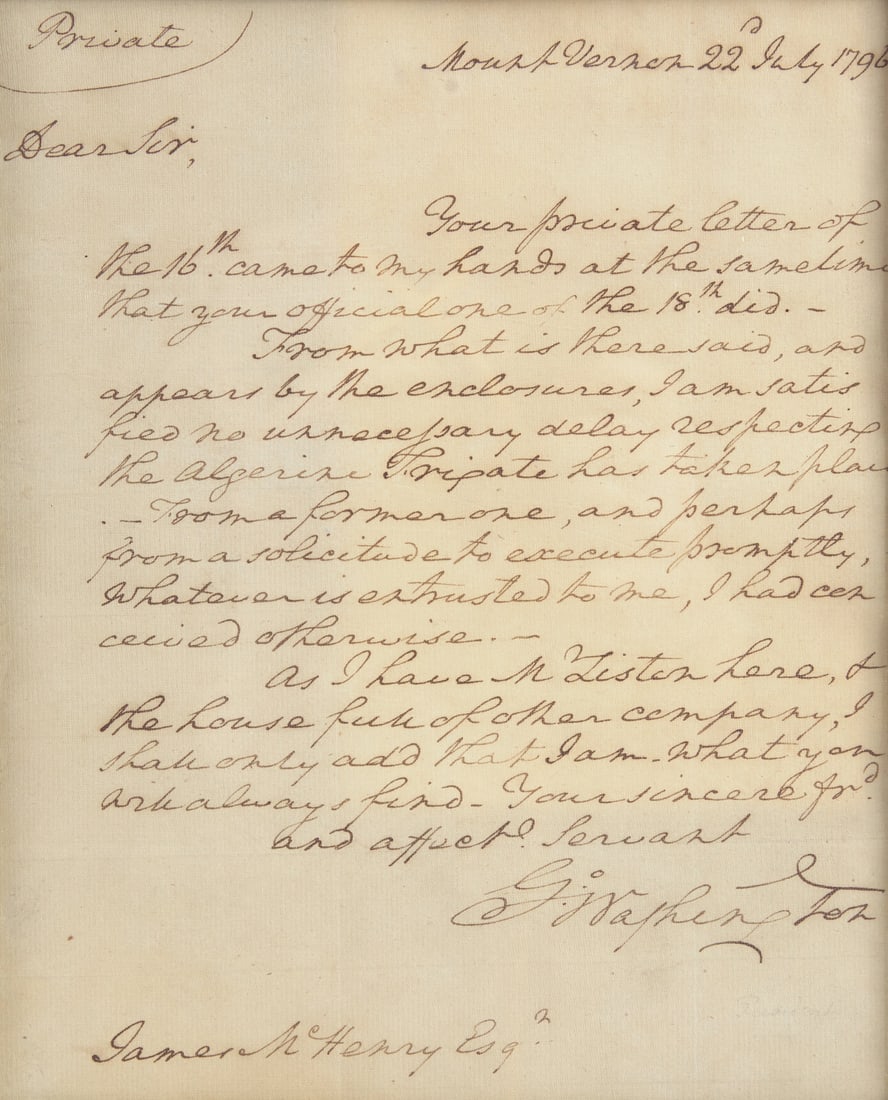 Private
Mount Vernon 22d July 1796
Dear Sir,
Your private letter of
the 16th. came to my hands at the same time
that your official one of the 18th. did. –
From what is there said, and
appears by the enclosures, I am satis
fied no unnecessary delay respecting
the Algerine Frigate has taken place
. – From a former one, and perhaps
from a solicitude to execute promptly,
whatever is entrusted to me, I had con
ceived otherwise. –
As I have Mr Liston here, &
the house full of other company, I
shall only add that I am – what you
will always find – Your sincere frd.
and affecte. Servant
Go: Washington
James McHenry Esqr.